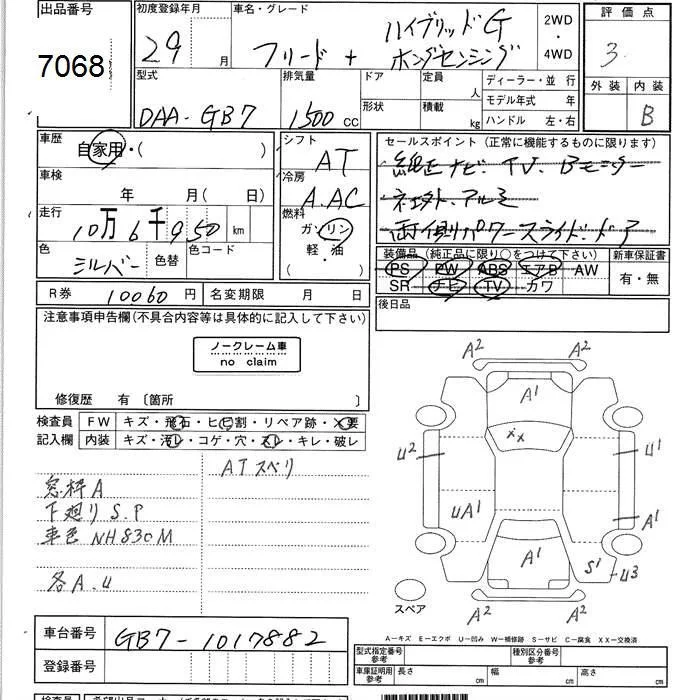 出品番号
7068
初度登録年月
29 月
車名・グレード
フリード + ハイブリッドG
ホンダセンシング
2WD
・
4WD
評価点
3
外装 内装
B
型式
DAA-GB7
排気量
1500 cc
ドア
形状
定員 人
積載 kg
ディーラー・並行
モデル年式 年
ハンドル 左・右
車歴
自家用・( )
車検
年 月( 日)
走行
10万6千950 km
色
シルバー
色替
色コード
シフト
AT
冷房
A.AC
燃料
ガソリン
軽・油
( )
セールスポイント (正常に機能するものに限ります)
純正ナビ. TV. Bモニター
ネエクト. アルミ
両側パワースライドドア
装備品 (純正品に限り○をつけて下さい)
PS PW ABS エアB AW
SR ナビ TV カワ
新車保証書
有・無
後日品
R券 10060 円
名変期限 月 日
注意事項申告欄(不具合内容等は具体的に記入して下さい)
ノークレーム車
no claim
修復歴 有 〔箇所 〕
検査員
記入欄
FW キズ・飛石・ヒビ割・リペア跡・X要
内装 キズ・汚レ・コゲ・穴・スレ・キレ・破レ
窓枠A
下廻りS.P
車色 NH830M
各A.U
ATスベリ
A2 A2
A1
xx
U2 U1
UA1 A1
A1 S1 U3
A2 A2
スペア
A－キズ E－エクボ U－凹み W－補修跡 S－サビ C－腐食 XX－交換済
車台番号
GB7-1017882
登録番号
型式指定番号
参考
種別区分番号
参考
車庫証明用
参考
長さ cm
幅 cm
高さ cm
検査員